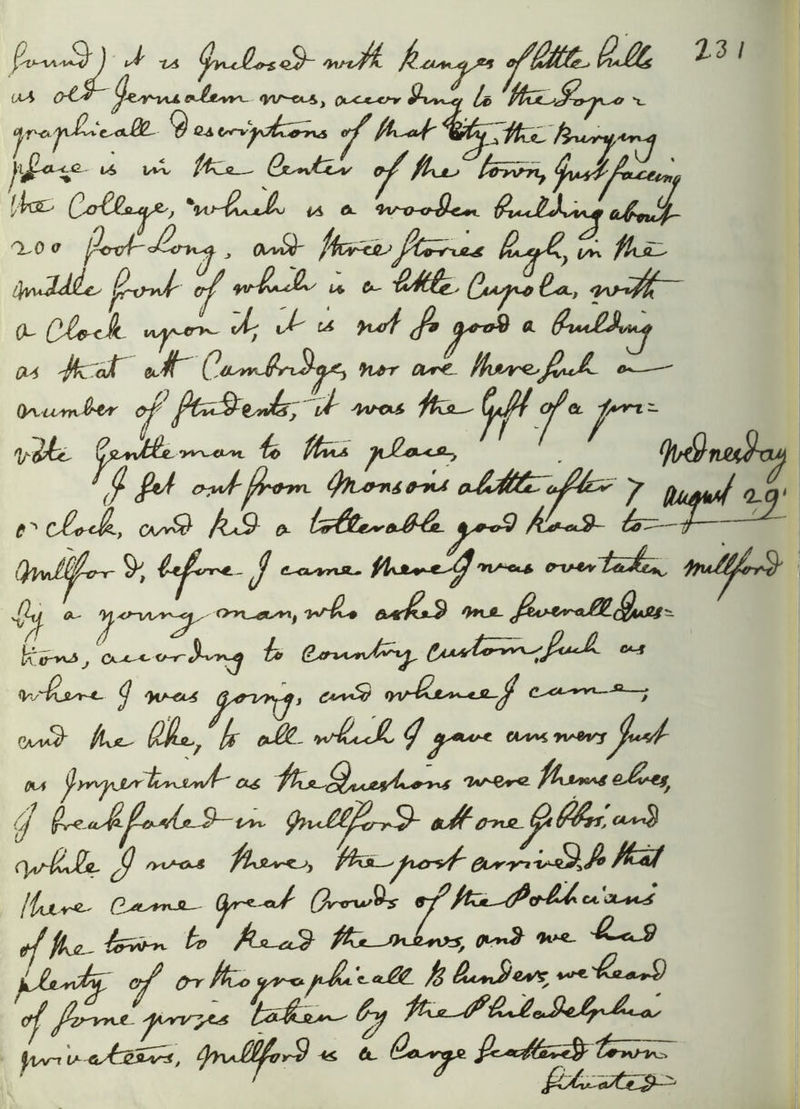 231
found) it is Inclosed with Ranges of little hills
as old Jerusalem was, according to the Topo-
graphicall Descriptions of that City, the Burying
place is in the Center of the town, just faceing
the College, which is a wooden building about
200 foot Long, and three stories high, in the
middle front of which is a little Cupola, with
a Clock upon it, it is not so good a building
as that att Cambridge, nor are there such a
number of students, it was the Gift of a pri=
vate Gentleman to this place,
Wednesday
August 29.
I set out from Monson's a little after 7
o'clock, and rid a tollerable good Road to
Millford, before I came there I was overtaken
Millford
by a young man, who asked me severall Ques=
tions, according to Country Custom, such as
where I was going, and whence I came,
and the like, to all which I gave answers just
as Impertinent as the Questions were themselves,
I breakfasted in Millford att one Gibbs', and
while I was there, the post arrived, so that
there came Great Crowds of the Politicians
of the town to Read the news, and we had
plenty of orthographicall Blunders, we heard
of some prizes taken by the Philadelphia
privateers, Millford is a Large scattered town
situated